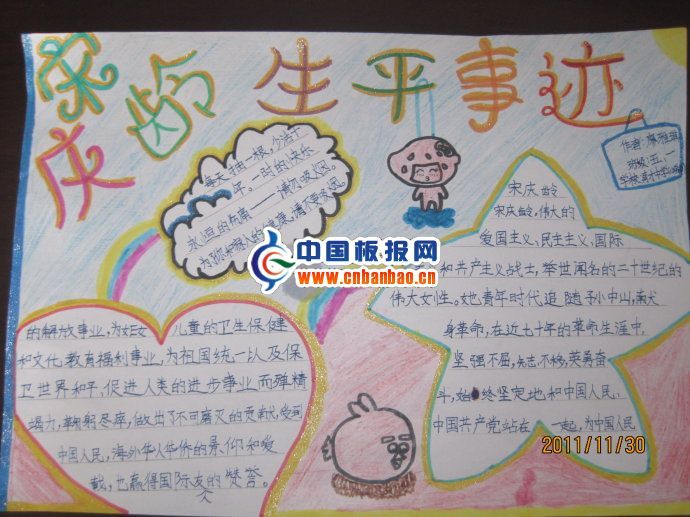 宋庆龄生平事迹
每天抽一根,少活十
年。一时的快乐
永恒的伤痛——请勿吸火因。
为了你和家人的健康,请不要吸烟。
作者:
班级:五、一
学校:
宋庆龄
宋庆龄,伟大的
爱国主义、民主主义、国际
和共产主义战士,举世闻名的二十世纪的
伟大女性。她青年时代追随孙中山,献
身革命,在近七十年的革命生涯中,
坚强不屈,矢志不移,英勇奋
斗,始终坚定地和中国人民、
中国共产党站在一起,为中国人民
的解放事业,为妇女儿童的卫生保健
和文化教育福利事业,为祖国统一以及保
卫世界和平、促进人类的进步事业而殚精
竭力,鞠躬尽瘁,做出了不可磨灭的贡献,受到
中国人民、海外华人华侨的景仰和爱
戴,也赢得国际友人的赞答。
中国板报网
www.cnbanbao.cn
2011/11/30